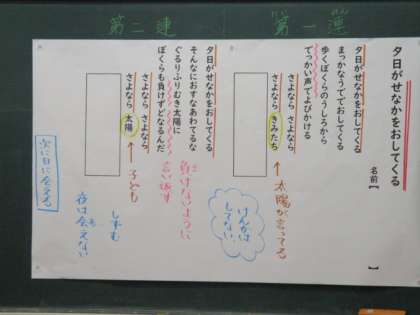 第一連
夕日がせなかをおしてくる
名前【　】
夕日がせなかをおしてくる
まっかなうででおしてくる
歩くぼくらのうしろから
でっかい声でよびかける
さよなら さよなら
さよなら きみたち
太陽が言ってる
けんかは
してない。
第二連
夕日がせなかをおしてくる
そんなにおすなあわてるな
ぐるりふりむき太陽に
ぼくらも負けずどなるんだ
さよなら さよなら
さよなら 太陽
負けないように
言い返す
子ども
しずむ
夜は会えない
次に日に会える